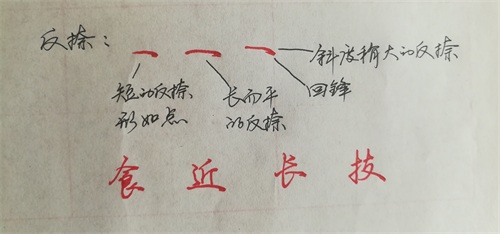 反捺：
斜度稍大的反捺
回锋
短的反捺
形如点
长而平
的反捺
食 近 长 技